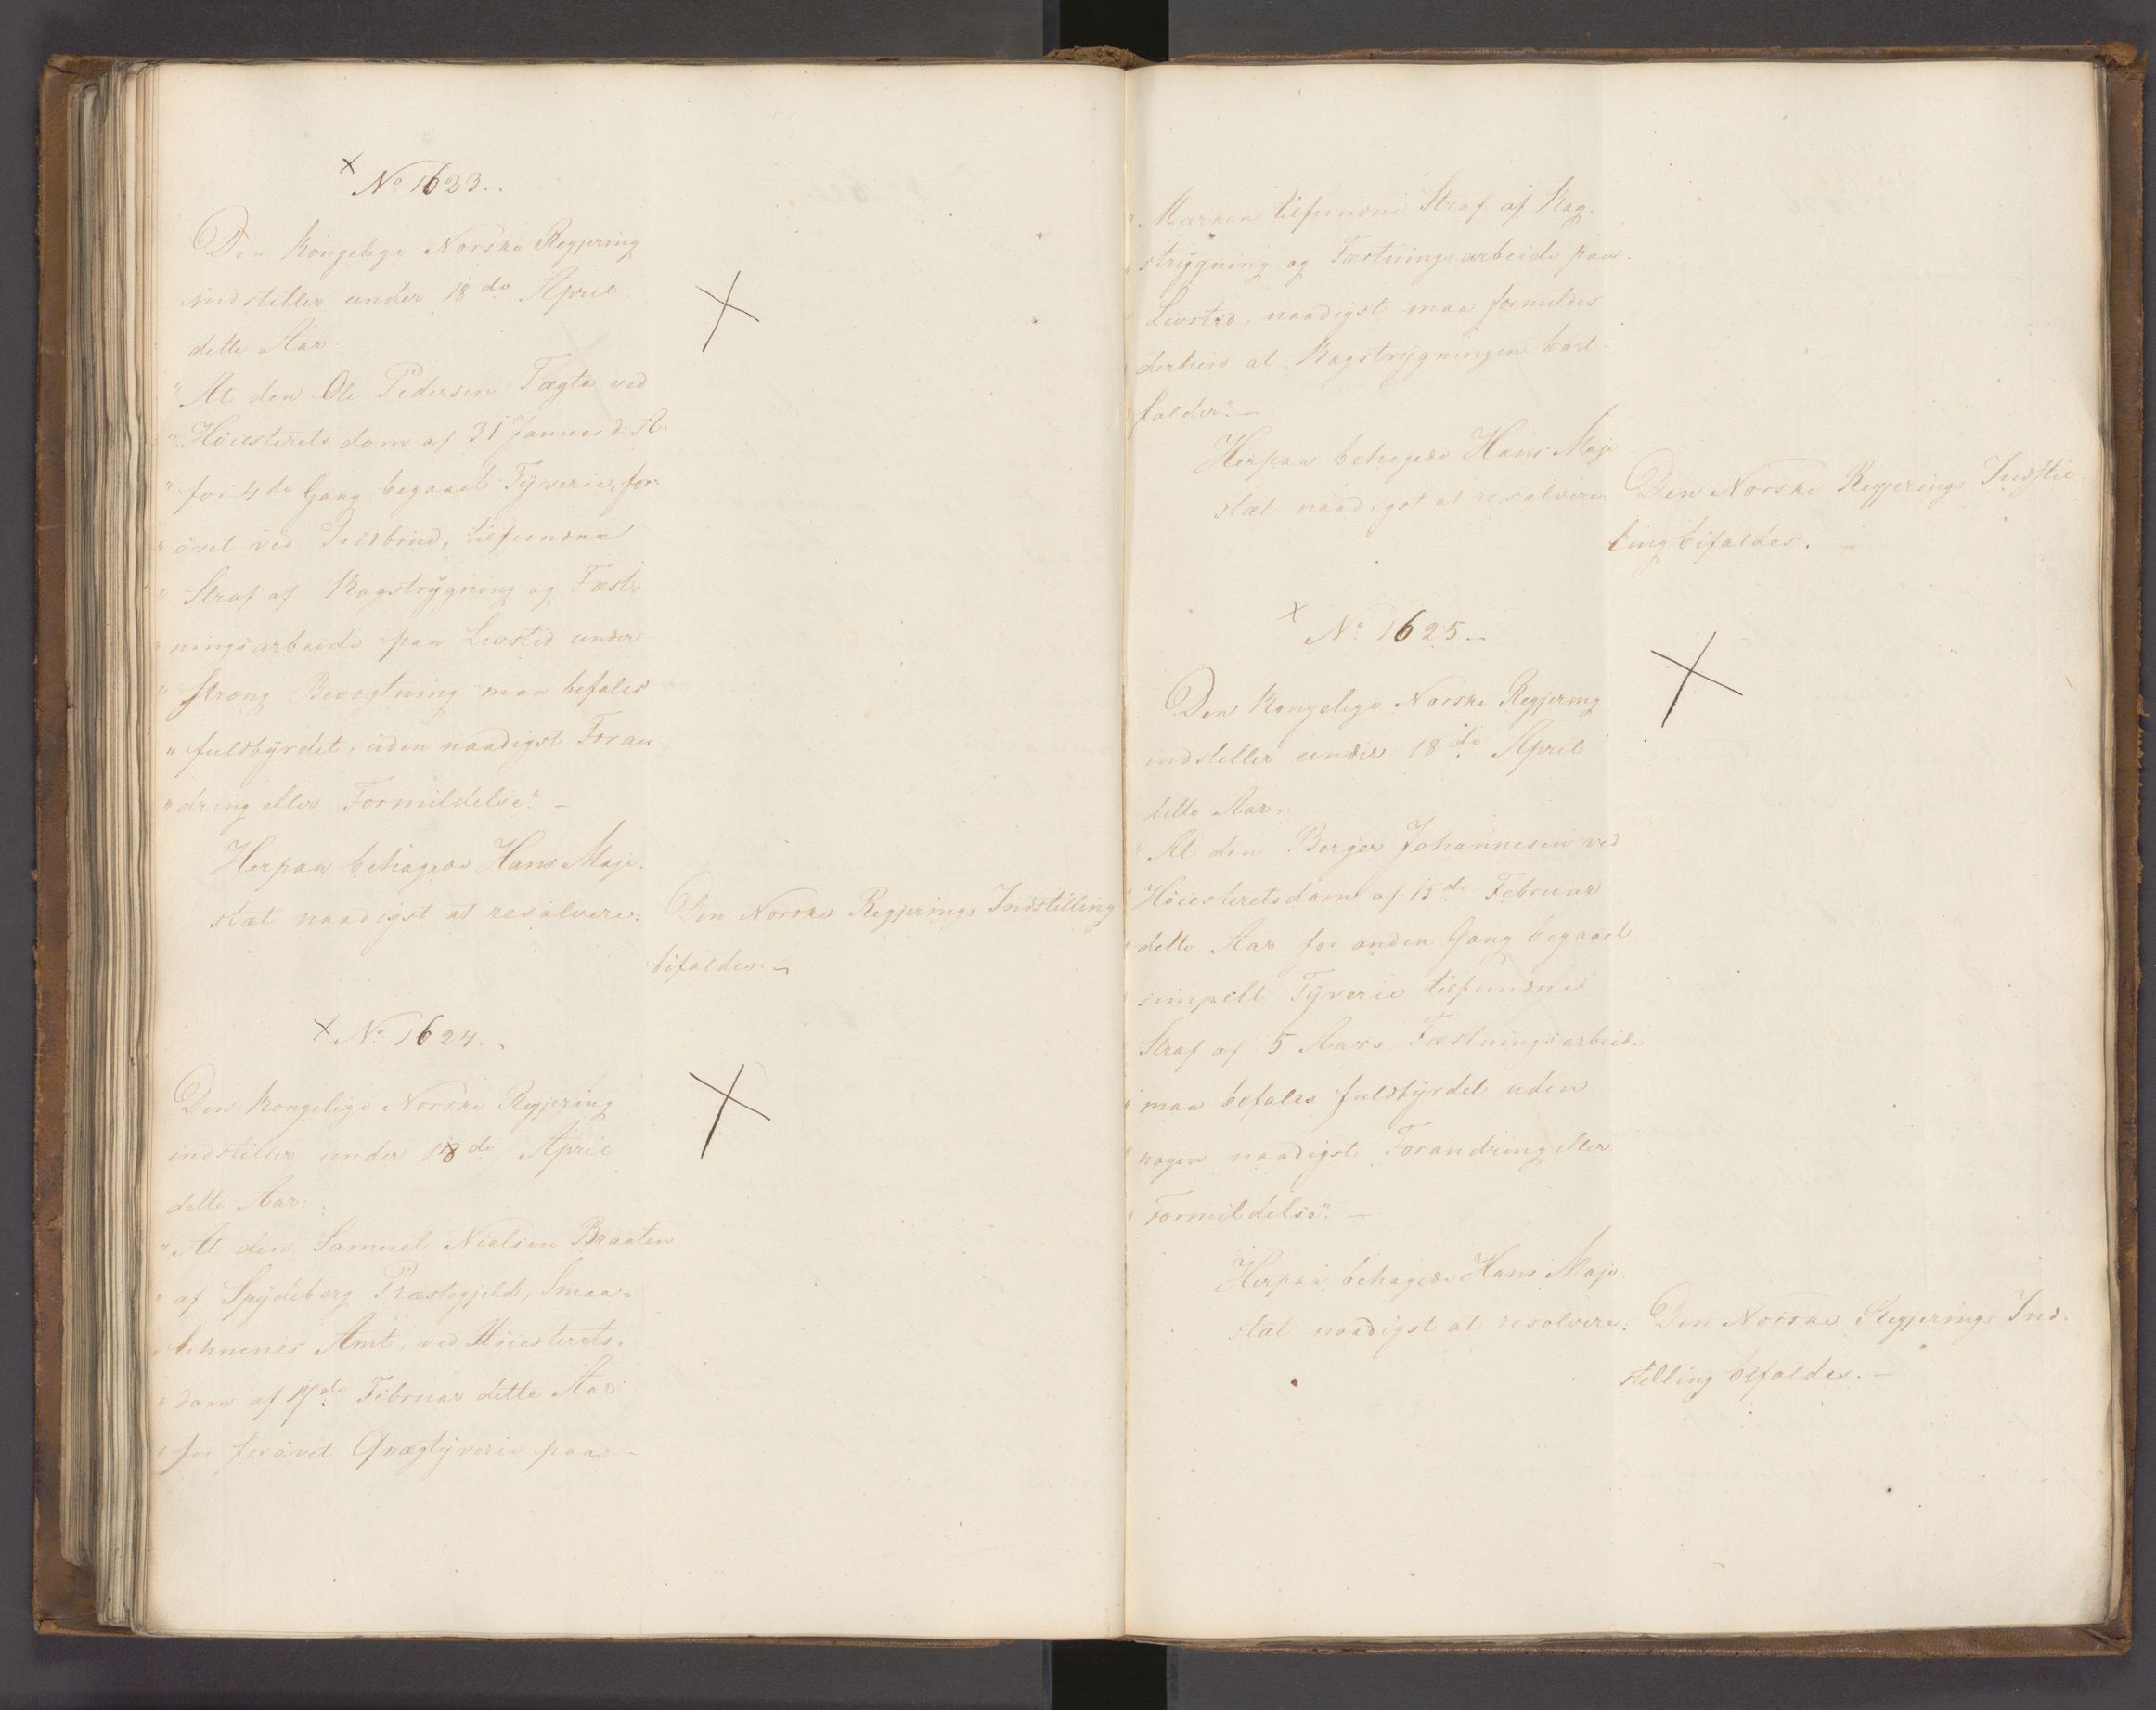 × No 1623.
Den Kongelige Norske Regjering
indstiller under 18de April
dette Aar.
"At den Ole Pedersen Tægta ved
" Høiesterets dom af 31 Januar d: A:
" for 4de Gang begaaet Tyverie, for-
" øvet ved Indbrud, tilfundne
" Straf af Kagstrygning og Fæst-
" ningsarbeide paa Livstid under
" streng Bevogtning maa befales
" fuldbyrdet, uden naadigst Foran
" dring eller Formildelse". –
Herpaa behagede Hans Maje-
stæt naadigst at resolvere: Den Norske Regjerings Indstilling
bifaldes. –
× No 1624.
Den Kongelige Norske Regjering
indstiller under 18de April
dette Aar:
"At den Samuel Nielsen Braaten
" af Spydeberg Præstegjeld, Smaa-
" lehnenes Amt, ved Høiesterets-
" dom af 17de Februar dette Aar
" for forøvet Qvægtyverie paa
" Marken tilfundne Straf af Kag-
" strygning og Fæstningsarbeide paa
" Livstid, naadigst maa formildes
derhen at Kagstrygningen bort-
falder". –
Herpaa behagede Hans Maje
stæt naadigst at resolvere: Den Norske Regjerings Indstil-
ling bifaldes. –
× No 1625.
Den Kongelige Norske Regjering
indstiller under 18de April
dette Aar.
" At den Berger Johannesen ved
" Høiesteretsdom af 15de Februar
" dette Aar for anden Gang begaaet
" simpelt Tyverie tilfundne
Straf af 5 Aars Fæstningsarbeide
" maa befales fuldbyrdet uden
" nogen naadigst Forandring eller
" Formildelse". –
Herpaa behagede Hans Maje-
stæt naadigst at resolvere: Den Norske Regjerings Ind-
stilling bifaldes. –